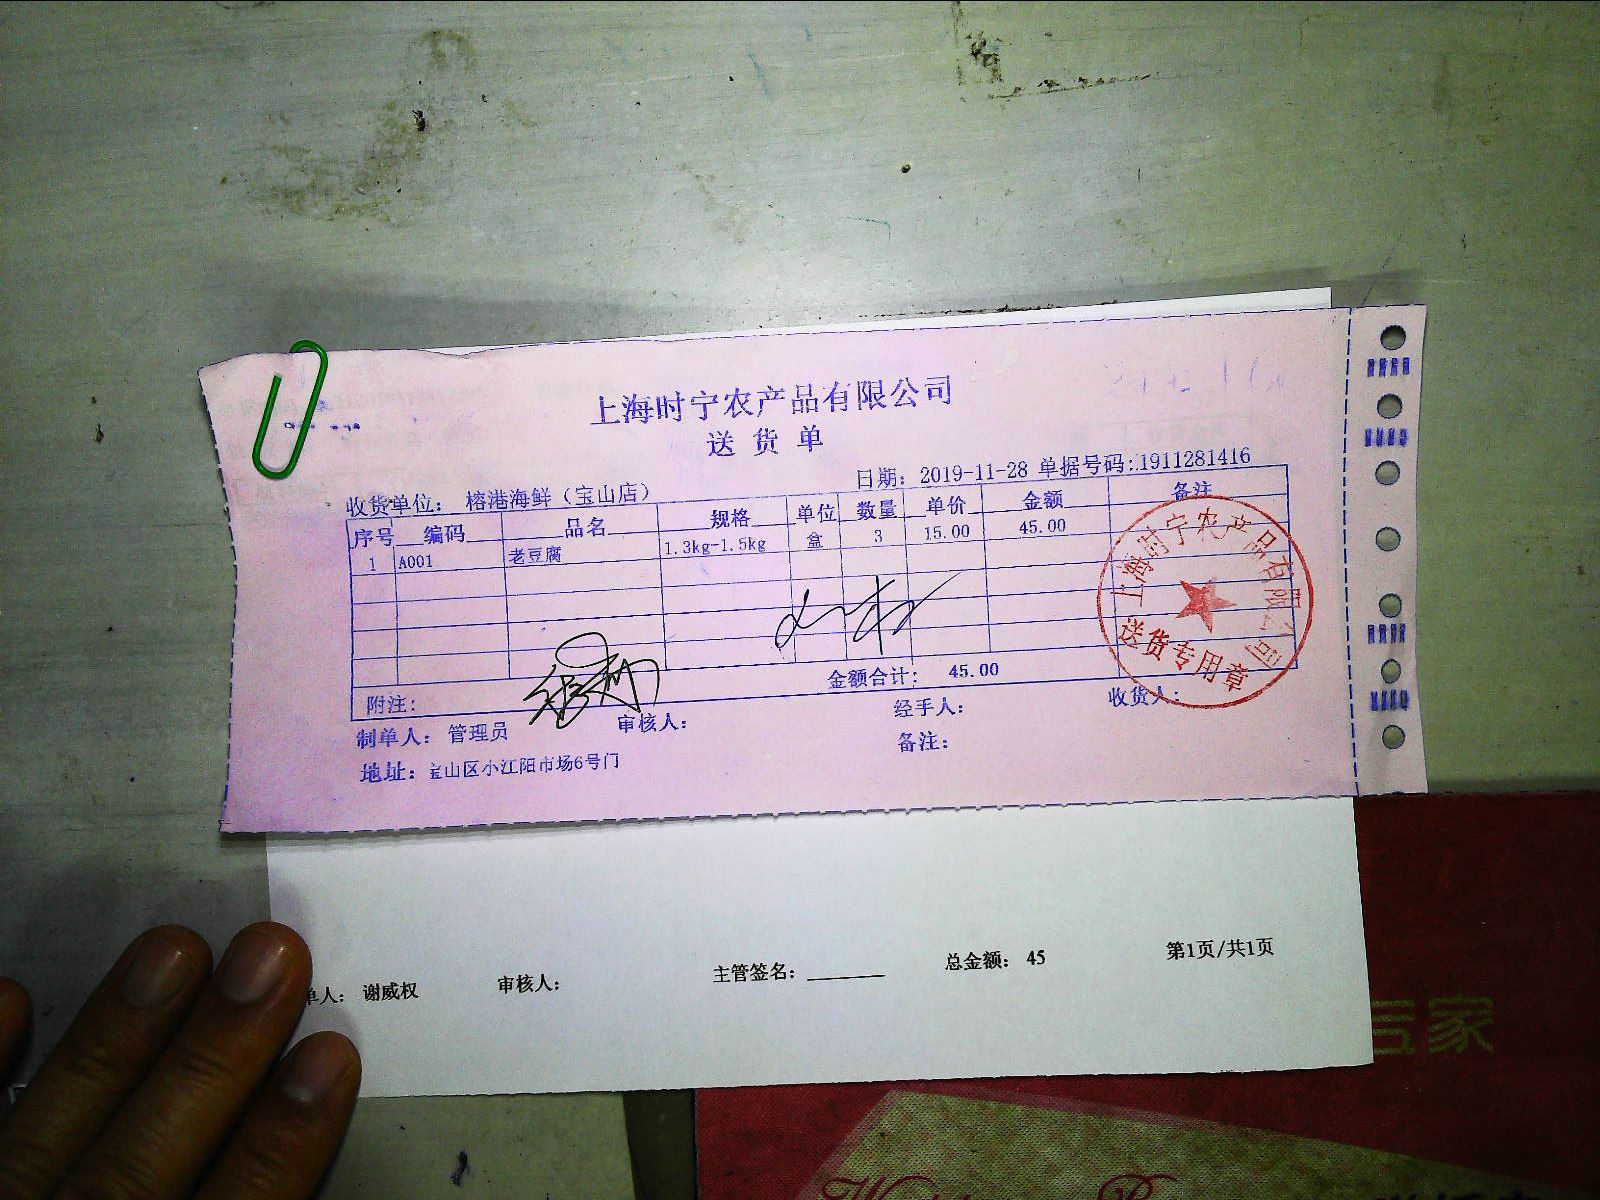 上海时宁农产品有限公司
送货单
日期：2019-11-28 单据号码:1911281416
收货单位： 榕港海鲜（宝山店）
序号 编码 品名 规格 单位 数量 单价 金额 备注
1 A001 老豆腐 1.3kg-1.5kg 盒 3 15.00 45.00
金额合计： 45.00
附注：
制单人： 管理员 审核人： 经手人： 收货人：
地址：宝山区小江阳市场6号门 备注：
上海时宁农产品有限公司
送货专用章
单人： 谢威权 审核人： 主管签名： 总金额： 45 第1页/共1页